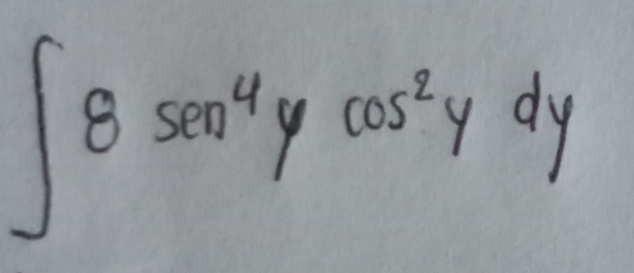 ∫ 8 sen⁴y cos²y dy